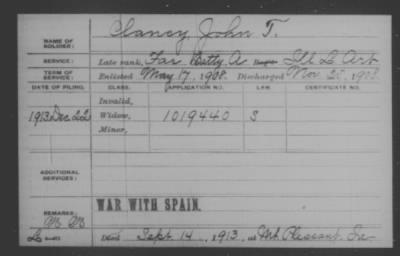 NAME OF SOLDIER: Clancy, John T.
SERVICE: Late rank, Far. Batty A Ill L. Art.
TERM OF SERVICE: Enlisted May 17, 1908. Discharged Nov. 25, 1908
DATE OF FILING. CLASS. APPLICATION NO. LAW. CERTIFICATE NO.
Invalid,
1913 Dec 22 Widow, 1019440 S
Minor,
ADDITIONAL SERVICES:
WAR WITH SPAIN.
REMARKS:
Died Sept. 14, 1913, at Mt. Pleasant, Ia